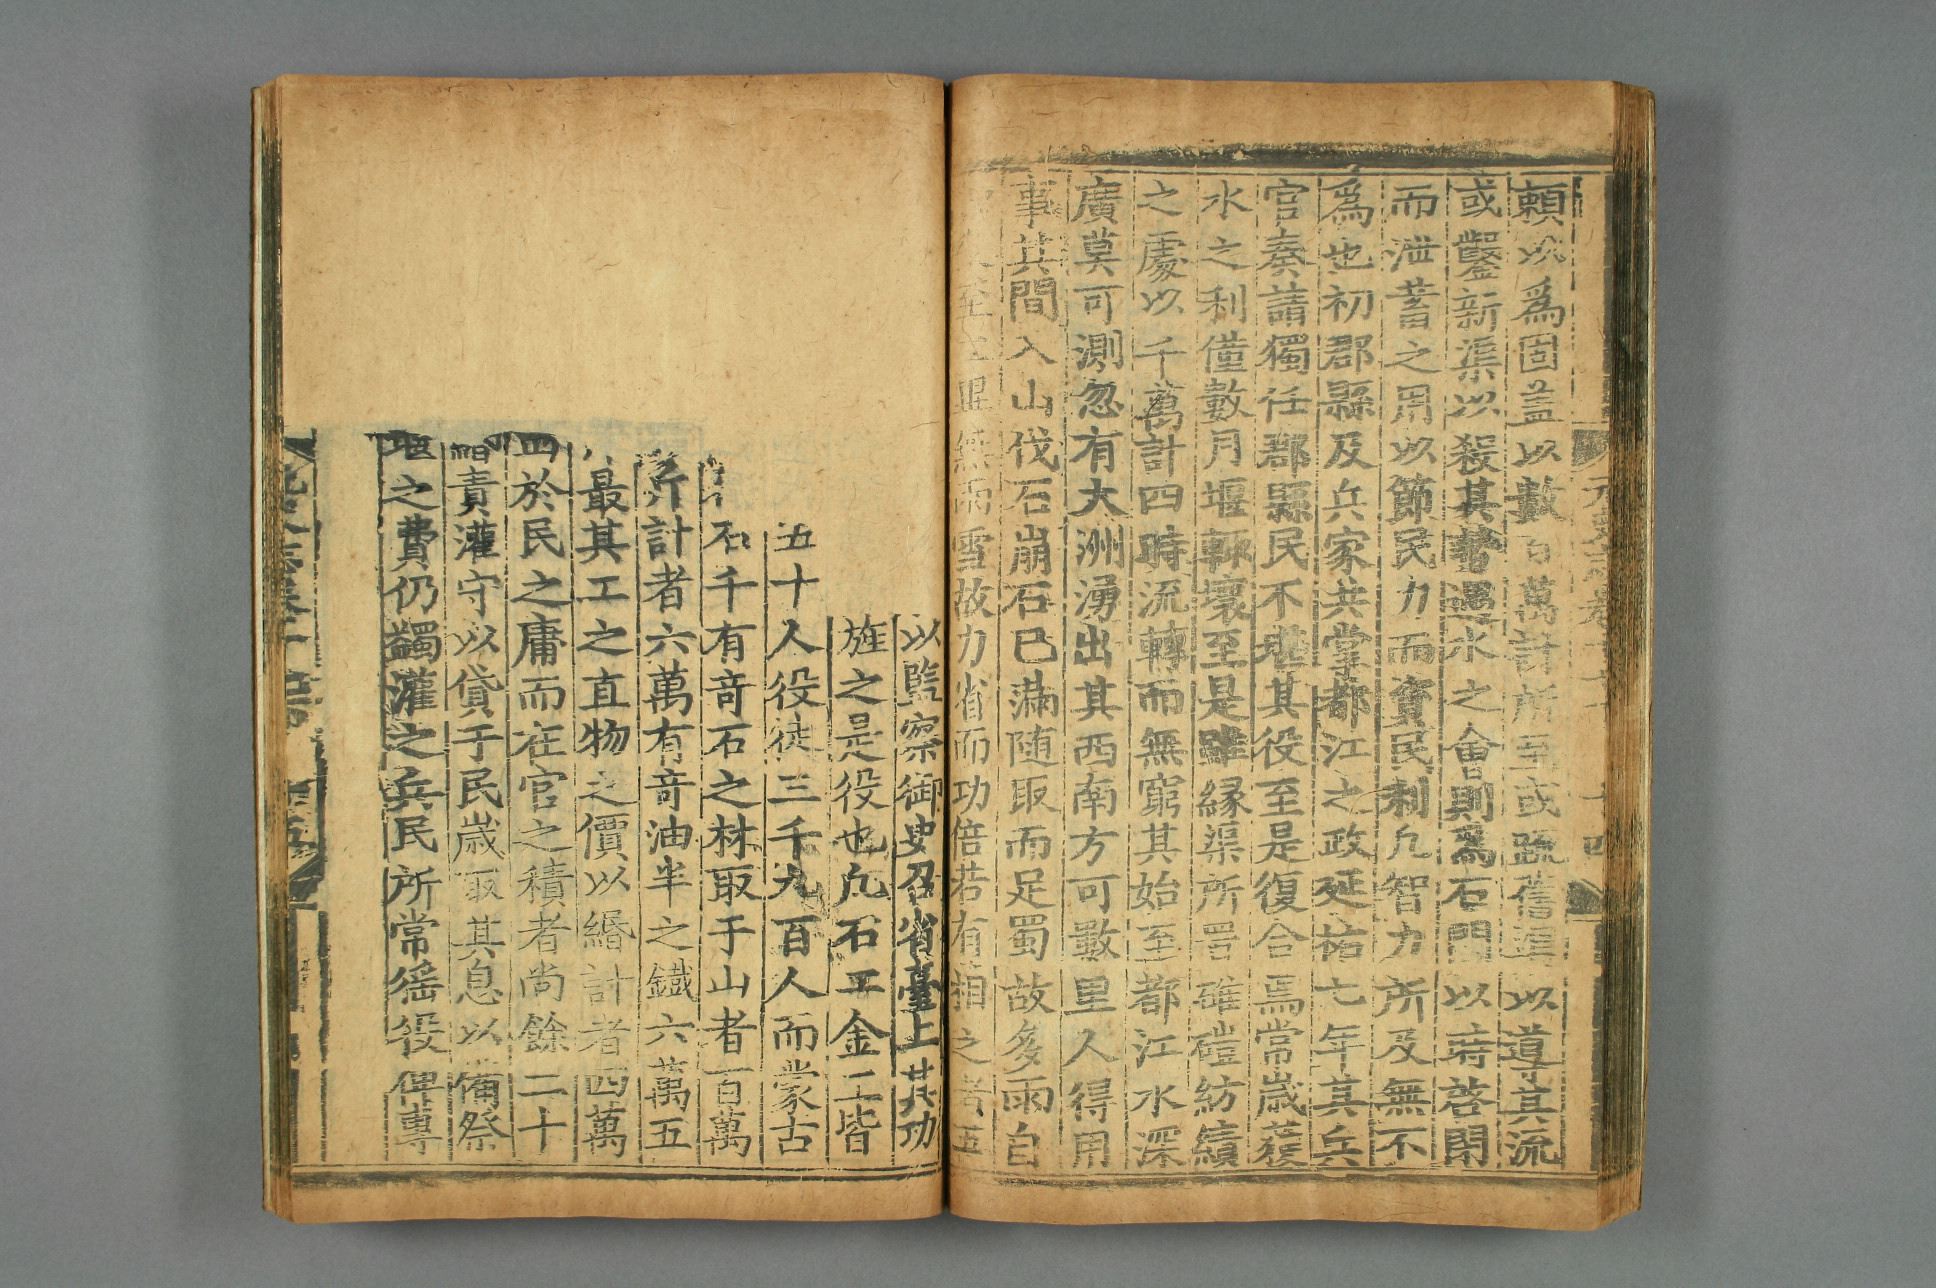 頼以爲固盖以數百萬計所至或疏舊渠以導其流
或鑿新渠以殺其勢遇水之會則爲石門以時啓閉
而泄蓄之用以節民力而資民利凡智力所及無不
爲也初郡縣及兵家共掌都江之政延祐七年其兵
官奏請獨任郡縣民不堪其役至是復合焉常歳獲
水之利僅數月堰輒壞至是雖緣渠所置碓磑紡績
之處以千萬計四時流轉而無窮其始至都江水深
廣莫可測忽有大洲湧出其西南方可數里人得用
事其間入山伐石崩石已滿随取而足蜀故多雨自
無雨雪故力省而功倍若有相之者五
以監察御史召省臺上其功
旌之是役也凡石工金工皆
五十人役徒三千九百人而蒙古
石千有竒石之材取于山者百萬
斤計者六萬有竒油半之鐵六萬五
最其工之直物之價以緡計者四萬
四於民之庸而在官之積者尚餘二十
緡責灌守以貸于民歳取其息以備祭
堰之費仍蠲灌之兵民所常徭役俾專